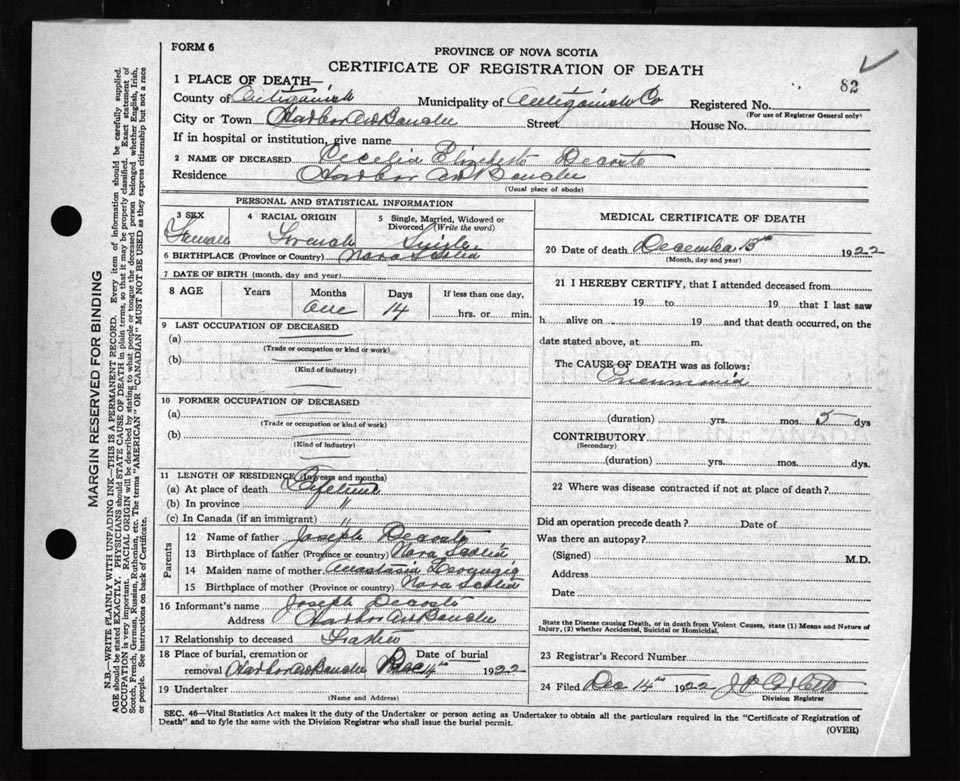 FORM 6
PROVINCE OF NOVA SCOTIA
CERTIFICATE OF REGISTRATION OF DEATH
82
1 PLACE OF DEATH—
County of Antigonish Municipality of Antigonish Co Registered No.
(For use of Registrar General only)
City or Town Harbor Au Bouche Street House No.
If in hospital or institution, give name
2 NAME OF DECEASED Cecelia Elizabeth Decoste
Residence Harbor Au Bouche
(Usual place of abode)
PERSONAL AND STATISTICAL INFORMATION
3 SEX 4 RACIAL ORIGIN 5 Single, Married, Widowed or Divorced (Write the word)
Female French Single
6 BIRTHPLACE (Province or Country) Nova Scotia
7 DATE OF BIRTH (month, day and year)
8 AGE Years Months Days If less than one day,
One 14 hrs. or min.
9 LAST OCCUPATION OF DECEASED
(a)
(Trade or occupation or kind or work)
(b)
(Kind of industry)
10 FORMER OCCUPATION OF DECEASED
(a)
(Trade or occupation or kind of work)
(b)
(Kind of industry)
11 LENGTH OF RESIDENCE (in years and months)
(a) At place of death Lifetime
(b) In province "
(c) In Canada (if an immigrant) "
Parents
12 Name of father Joseph Decoste
13 Birthplace of father (Province or country) Nova Scotia
14 Maiden name of mother Anastasia
15 Birthplace of mother (Province or country) Nova Scotia
16 Informant's name Joseph Decoste
Address Harbor Au Bouche
17 Relationship to deceased Father
18 Place of burial, cremation or removal Harbor Au Bouche Date of burial Dec 14th 1922
19 Undertaker
(Name and Address)
MEDICAL CERTIFICATE OF DEATH
20 Date of death December 13th 1922
(Month, day and year)
21 I HEREBY CERTIFY, that I attended deceased from
19 to 19 that I last saw
h alive on 19 and that death occurred, on the
date stated above, at m.
The CAUSE OF DEATH was as follows:
Pneumonia
(duration) yrs. mos. 5 dys
CONTRIBUTORY
(Secondary)
(duration) yrs. mos. dys.
22 Where was disease contracted if not at place of death?
Did an operation precede death? Date of
Was there an autopsy?
(Signed) M.D.
Address
Date
State the Disease causing Death, or in death from Violent Causes, state (1) Means and Nature of
Injury, (2) whether Accidental, Suicidal or Homicidal.
23 Registrar's Record Number
24 Filed Dec 14th 1922
Division Registrar
SEC. 46—Vital Statistics Act makes it the duty of the Undertaker or person acting as Undertaker to obtain all the particulars required in the "Certificate of Registration of
Death" and to fyle the same with the Division Registrar who shall issue the burial permit.
(OVER)
MARGIN RESERVED FOR BINDING
N.B.—WRITE PLAINLY WITH UNFADING INK—THIS IS A PERMANENT RECORD. Every item of information should be carefully supplied.
AGE should be stated EXACTLY. PHYSICIANS should STATE CAUSE OF DEATH in plain terms, so that it may be properly classified. Exact statement of
OCCUPATION is very important. RACIAL ORIGIN will be described by stating to what people or tongue the deceased person belonged whether English, Irish,
Scotch, French, German, Russian, Ruthenian, etc. The terms "AMERICAN" OR "CANADIAN" MUST NOT BE USED as they express citizenship but not a race
or people. See instructions on back of Certificate.